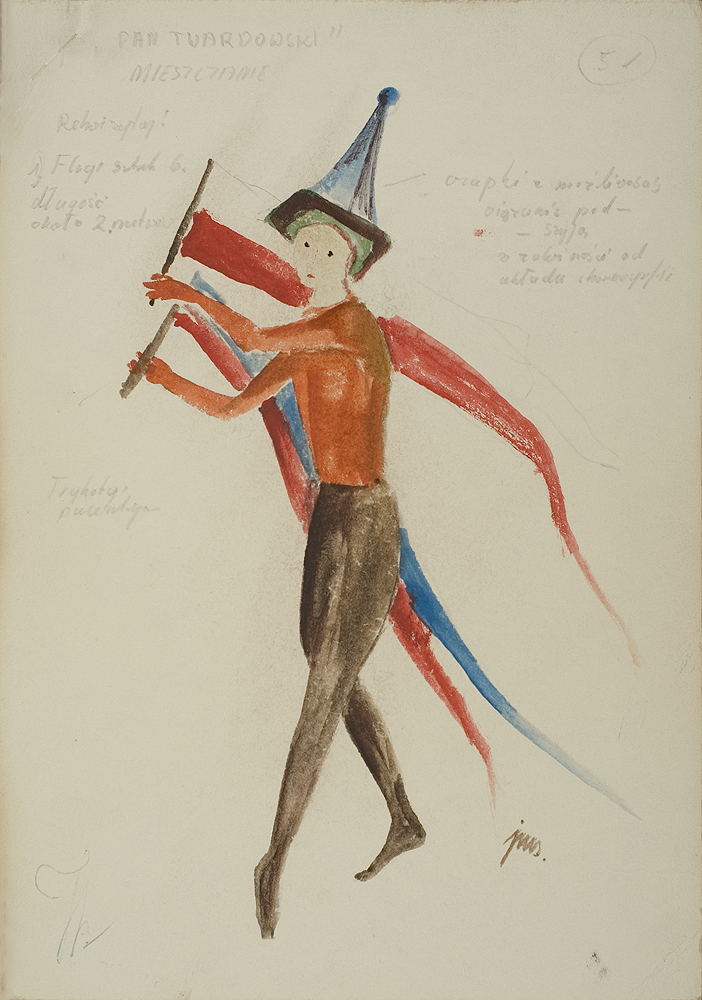 „PAN TWARDOWSKI”
MIESZCZANIE
51
Rekwizyty!
1) Flagi sztuk 6.
długość
około 2 metrów
czapki z możliwością
wiązania pod-
- szyją
w zależności od
układu choreografii
Trykoty
jms.